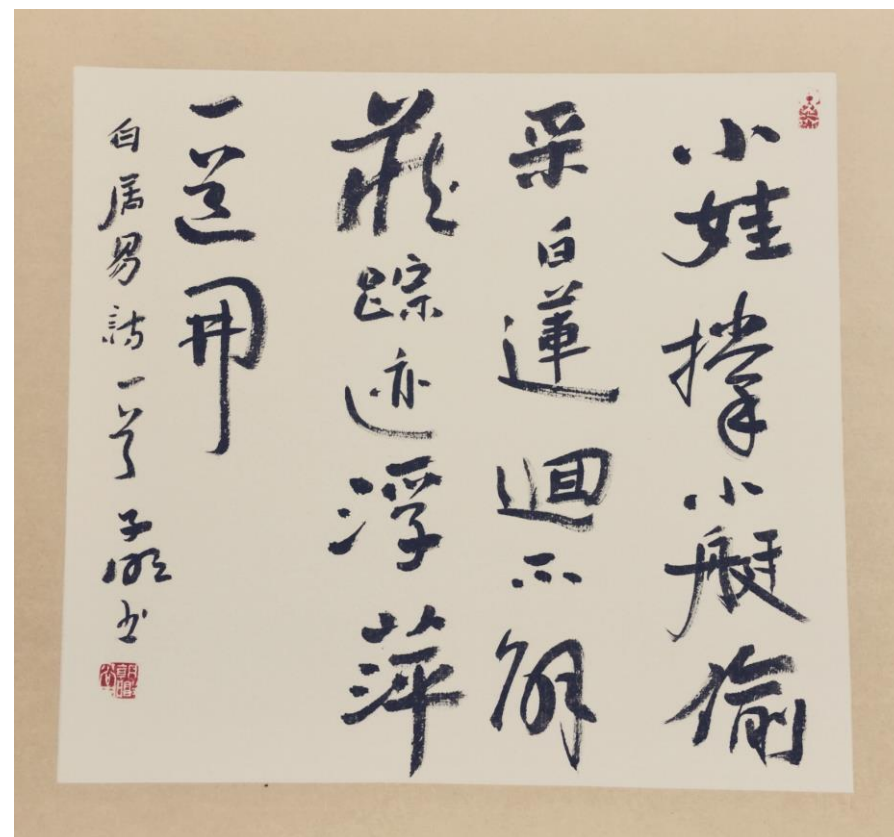 小娃撑小艇偷
采白蓮迴不解
藏踪迹浮萍
一道開
白居易詩一首 子龙书